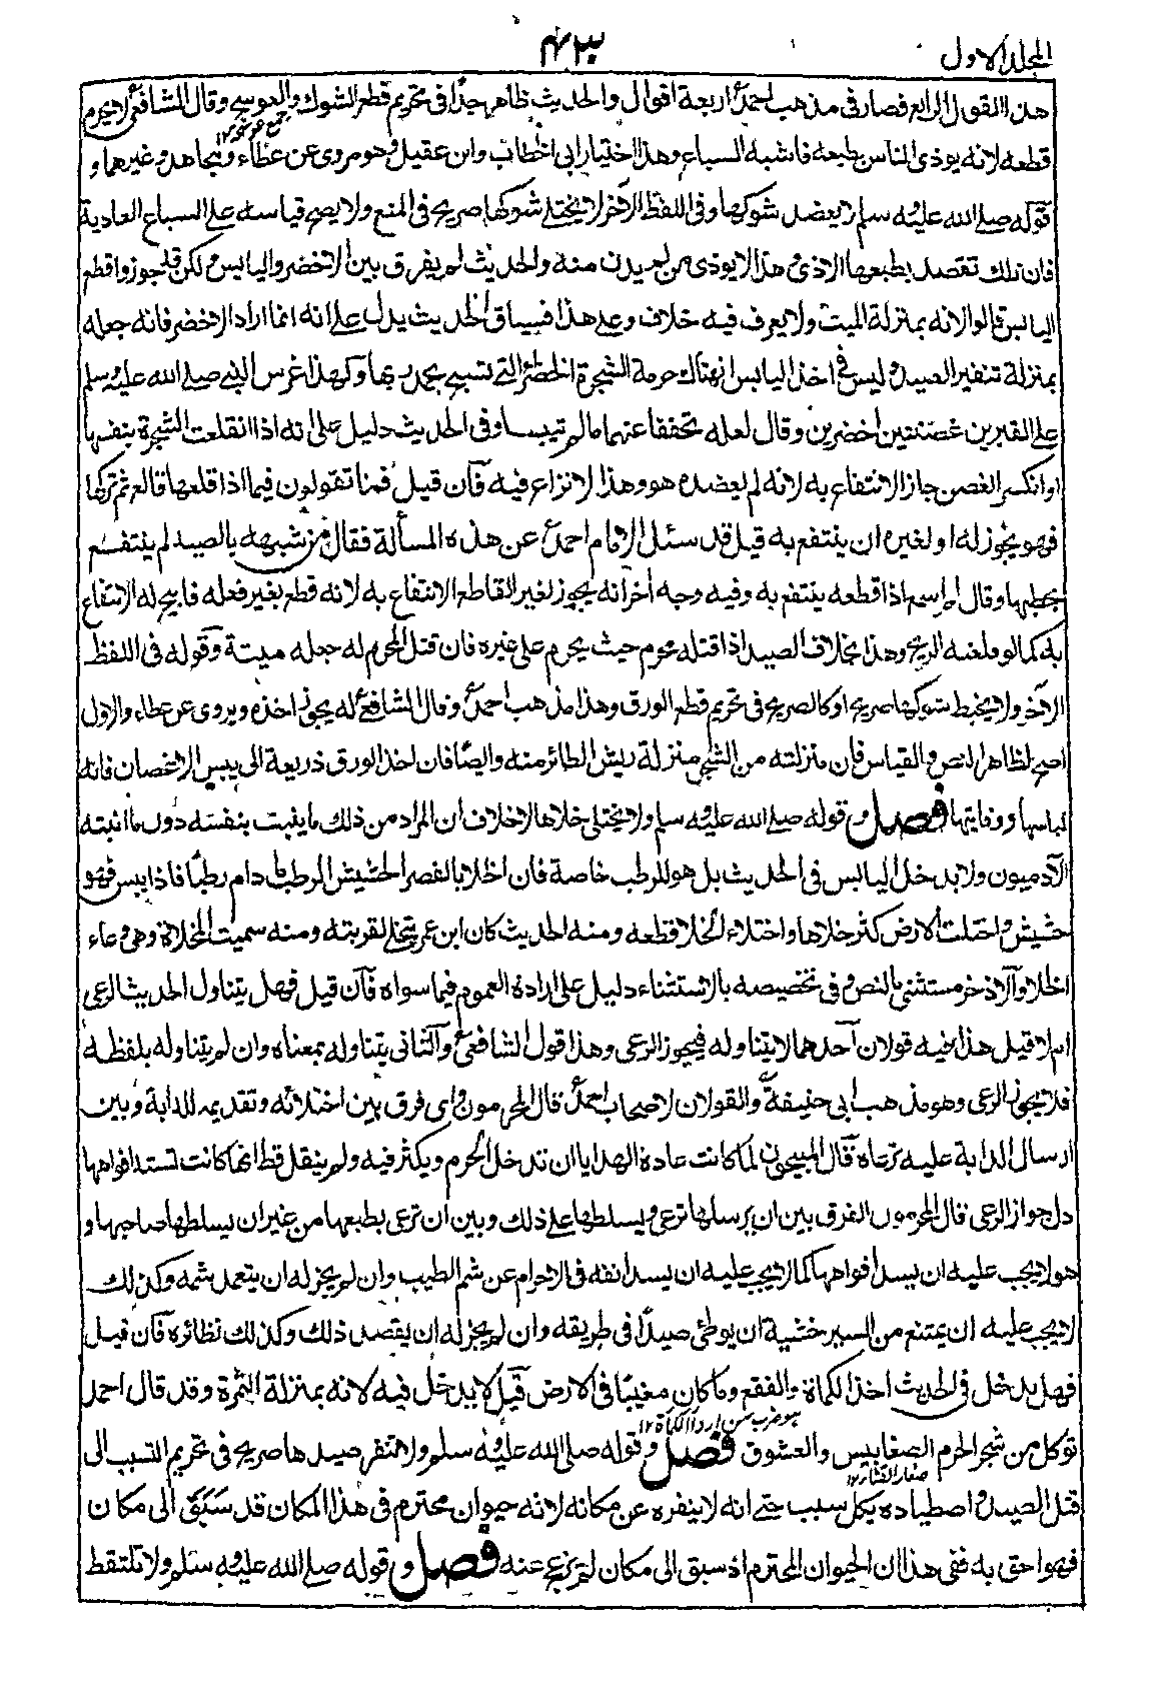 المجلد الاول
۴۳۰
هذا القول الرابع فصار فى مذهب احمد اربعة اقوال والحديث ظاهر جدا فى تحريم قطع الشوك والعوسج وقال الشافعى لا يحرم
جمع عوسجة ۱۲
قطعه لانه يوذى الناس بطبعه فاشبه السباع وهذا اختيار ابى الخطاب وابن عقيل وهو مروى عن عطاء ومجاهد وغيرهما و
قوله صلى الله عليه وسلم لا يعضد شوكها وفى اللفظ الآخر لا يختلى شوكها صريح فى المنع ولا يصح قياسه على السباع العادية
فان تلك تقصد بطبعها الاذى وهذا لا يوذى من لم يدن منه والحديث لم يفرق بين الاخضر واليابس ولكن قد جوزوا قطع
اليابس قالوا لانه بمنزلة الميت ولا يعرف فيه خلاف وعلى هذا فسياق الحديث يدل على انه انما اراد الاخضر فانه جعله
بمنزلة تنفير الصيد وليس فى اخذ اليابس انتهاك حرمة الشجرة الخضراء التى تسبح بحمد ربها ولهذا غرس النبى صلى الله عليه وسلم
على القبرين غصنين اخضرين وقال لعله يخفف عنهما ما لم تيبسا وفى الحديث دليل على انه اذا انقلعت الشجرة بنفسها
او انكسر الغصن جاز الانتفاع به لانه لم يعضده هو وهذا لا نزاع فيه فان قيل فما تقولون فيما اذا قلعها قالع ثم تركها
فهو يجوز له او لغيره ان ينتفع به قيل قد سئل الامام احمد عن هذه المسألة فقال من شبهه بالصيد لم ينتفع
بحطبها وقال لم اسمع اذا قطعه ينتفع به وفيه وجه آخر انه يجوز لغير القاطع الانتفاع به لانه قطع بغير فعله فابيح له الانتفاع
به كما لو قلعته الريح وهذا بخلاف الصيد اذا قتله محرم حيث يحرم على غيره فان قتل المحرم له جعله ميتة وقوله فى اللفظ
الآخر ولا يخبط شوكها صريح او كالصريح فى تحريم قطع الورق وهذا مذهب احمد وقال الشافعى له يجوز اخذه ويروى عن عطاء والاول
اصح لظاهر النص والقياس فان منزلته من الشجر منزلة ريش الطائر منه وايضا فان اخذ الورق ذريعة الى يبس الاغصان فانه
لباسها ووقايتها فصل وقوله صلى الله عليه وسلم ولا يختلى خلاها لا خلاف ان المراد من ذلك ما ينبت بنفسه دون ما انبته
الآدميون ولا يدخل اليابس فى الحديث بل هو للرطب خاصة فان الخلا بالقصر الحشيش الرطب ما دام رطبا فاذا يبس فهو
حشيش واخلت الارض كثر خلاها واختلاء الخلا قطعه ومنه الحديث كان ابن عمر يختلى لفرسه ومنه سميت المخلاة وهى وعاء
الخلا والاذخر مستثنى بالنص وفى تخصيصه بالاستثناء دليل على ارادة العموم فيما سواه فان قيل فهل يتناول الحديث الرعى
ام لا قيل هذا فيه قولان احدهما لا يتناوله فيجوز الرعى وهذا قول الشافعى والثانى يتناوله بمعناه وان لم يتناوله بلفظه
فلا يجوز الرعى وهو مذهب ابى حنيفة والقولان لاصحاب احمد قال المحرمون واى فرق بين اختلائه وتقديمه للدابة وبين
ارسال الدابة عليه ترعاه قال المبيحون لما كانت عادة الهدايا ان تدخل الحرم ويكثر فيه ولم ينقل قط انها كانت تسد افواهها
دل جواز الرعى قال المحرمون الفرق بين ان يرسلها ترعى ويسلطها على ذلك وبين ان ترعى بطبعها من غير ان يسلطها صاحبها و
هو لا يجب عليه ان يسد افواهها كما لا يجب عليه ان يسد انفه فى الاحرام عن شم الطيب وان لم يجز له ان يتعمد بشمه وكذلك
لا يجب عليه ان يمتنع من السير خشية ان يوطى صيدا فى طريقه وان لم يجز له ان يقصد ذلك وكذلك نظائره فان قيل
فهل يدخل فى الحديث اخذ الكمأة والفقع وما كان مغيبا فى الارض قيل لا يدخل فيه لانه بمنزلة الثمرة وقد قال احمد
هو ضرب من اردأ الكمأة ۱۲
توكل من شجر الحرم الضغابيس والعشوق فصل وقوله صلى الله عليه وسلم ولا ينفر صيدها صريح فى تحريم التسبب الى
صغار القثاء ۱۲
قتل الصيد واصطياده بكل سبب حتى انه لا ينفره عن مكانه لانه حيوان محترم فى هذا المكان قد سبق الى مكان
فهو احق به ففى هذا ان الحيوان المحترم اذ سبق الى مكان لم يزعج عنه فصل وقوله صلى الله عليه وسلم ولا تلتقط